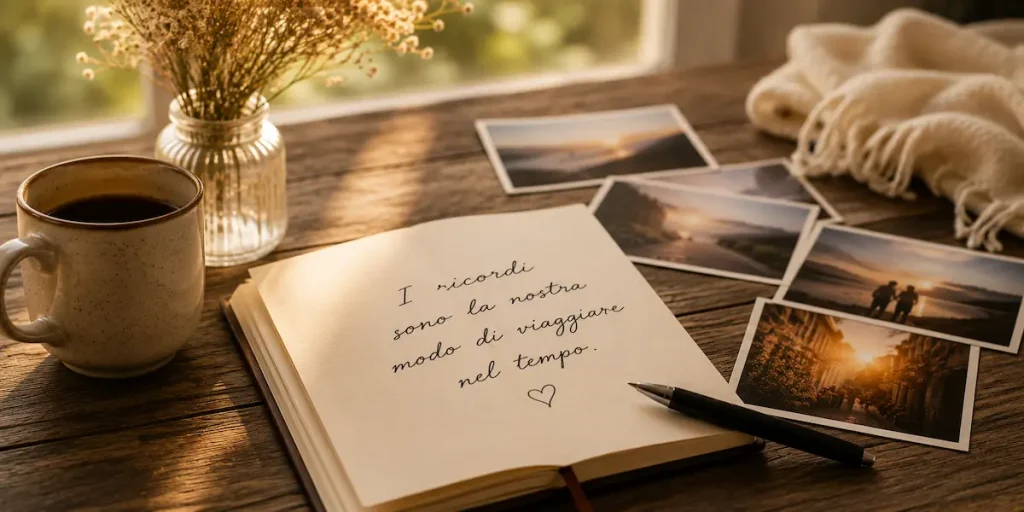 I ricordi
sono la nostra
modo di viaggiare
nel tempo.